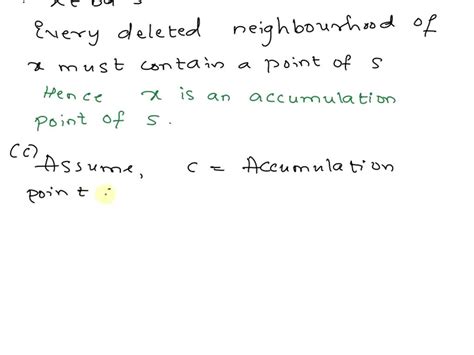 Every deleted neighbourhood of
x must contain a point of S
Hence x is an accumulation
point of S.
(c) Assume, c = Accumulation
point :